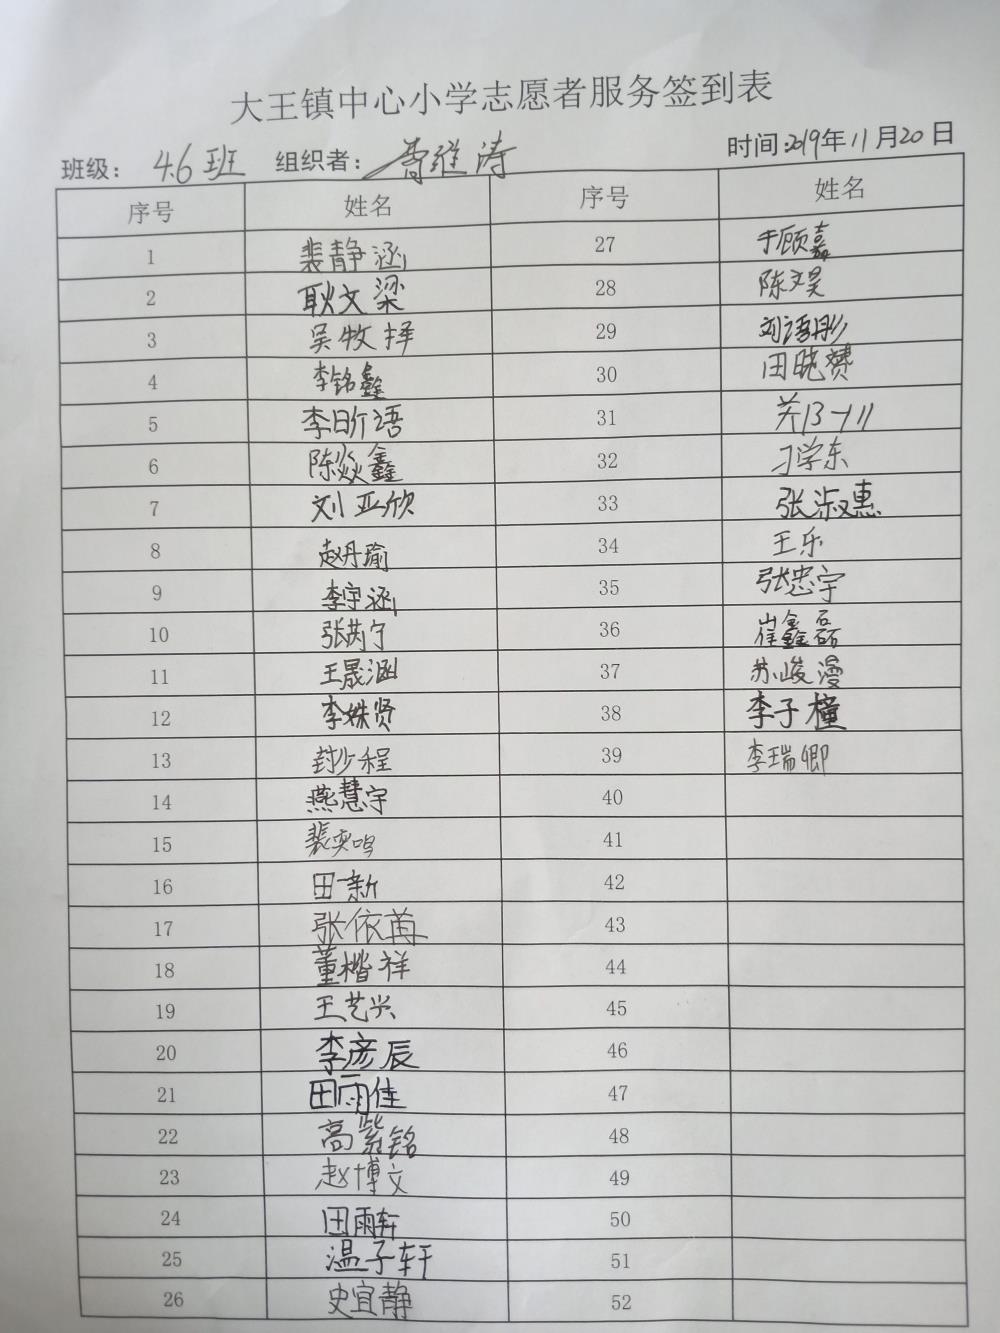 大王镇中心小学志愿者服务签到表
班级： 4.6班 组织者： 维涛 时间：2019年11月20日
序号 姓名 序号 姓名
1 裴静涵 27 于顾嘉
2 耿文梁 28 陈文昊
3 吴牧择 29 刘语彤
4 李铭鑫 30 田晓赟
5 李昕语 31
6 陈焱鑫 32 刁学东
7 刘亚欣 33 张淑惠
8 赵丹瑜 34 王乐
9 李宇涵 35 张忠宇
10 张芮宁 36 崔鑫磊
11 王晟涵 37 苏峻漫
12 李姝贤 38 李子橦
13 封少程 39 李瑞卿
14 燕慧宇 40
15 裴奕鸣 41
16 田新 42
17 张依苒 43
18 董楷祥 44
19 王艺兴 45
20 李彦辰 46
21 田雨佳 47
22 高紫铭 48
23 赵博文 49
24 田雨轩 50
25 温子轩 51
26 史宜静 52